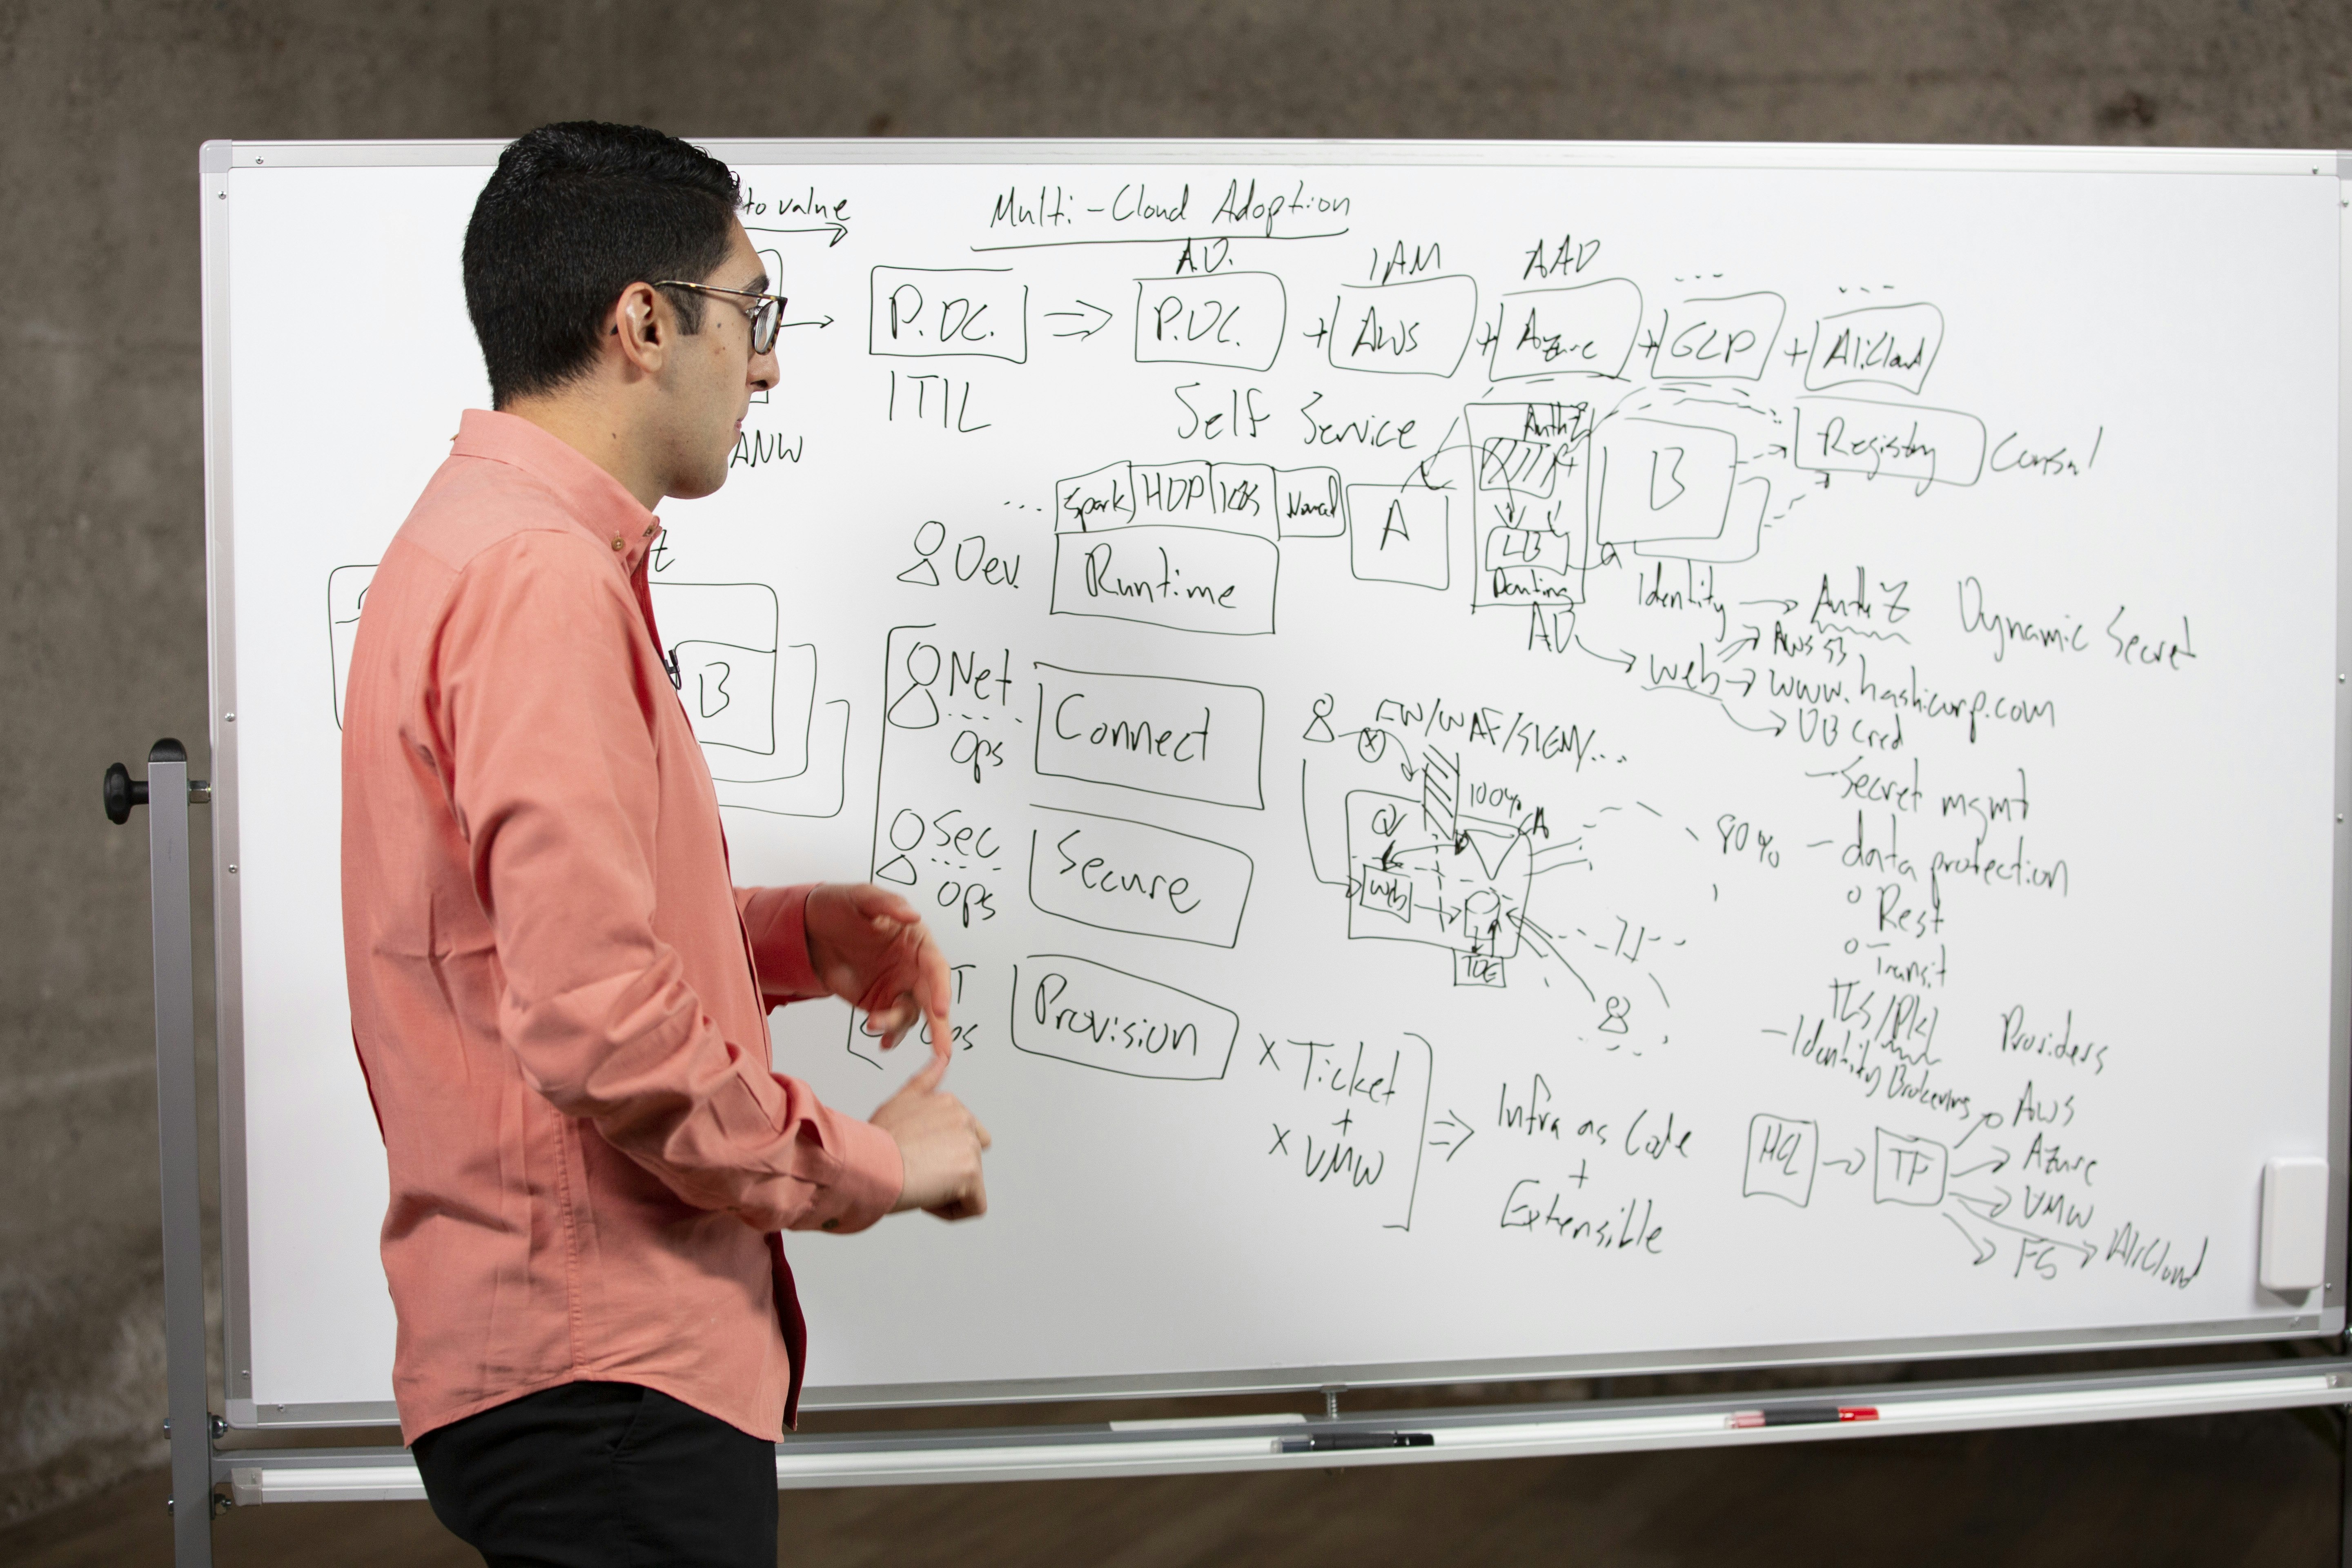 to value
Multi-Cloud Adoption
A.D. IAM AAD ... ...
P.DC. ⇒ P.DC. + AWS + Azure + GCP + AliCloud
ITIL
Self Service
ANW
AuthZ
B
Registry Consul
... Spark HDP K8S Nomad
A
Dev.
Runtime
LB
Routing
Identity → AuthZ
Dynamic Secret
AD
AWS S3
Web → www.hashicorp.com
DB Cred
B
Net
Ops
Connect
FW/WAF/SIEM/...
100%
- Secret mgmt
80%
- data protection
Sec
Ops
Secure
Web
o Rest
o Transit
TDE
TLS/PKI
- Identity Brokering
Provision
x Ticket
+
x VMW
⇒ Infra as Code
+
Extensible
Providers
HCL → TF
AWS
Azure
VMW
FS
AliCloud